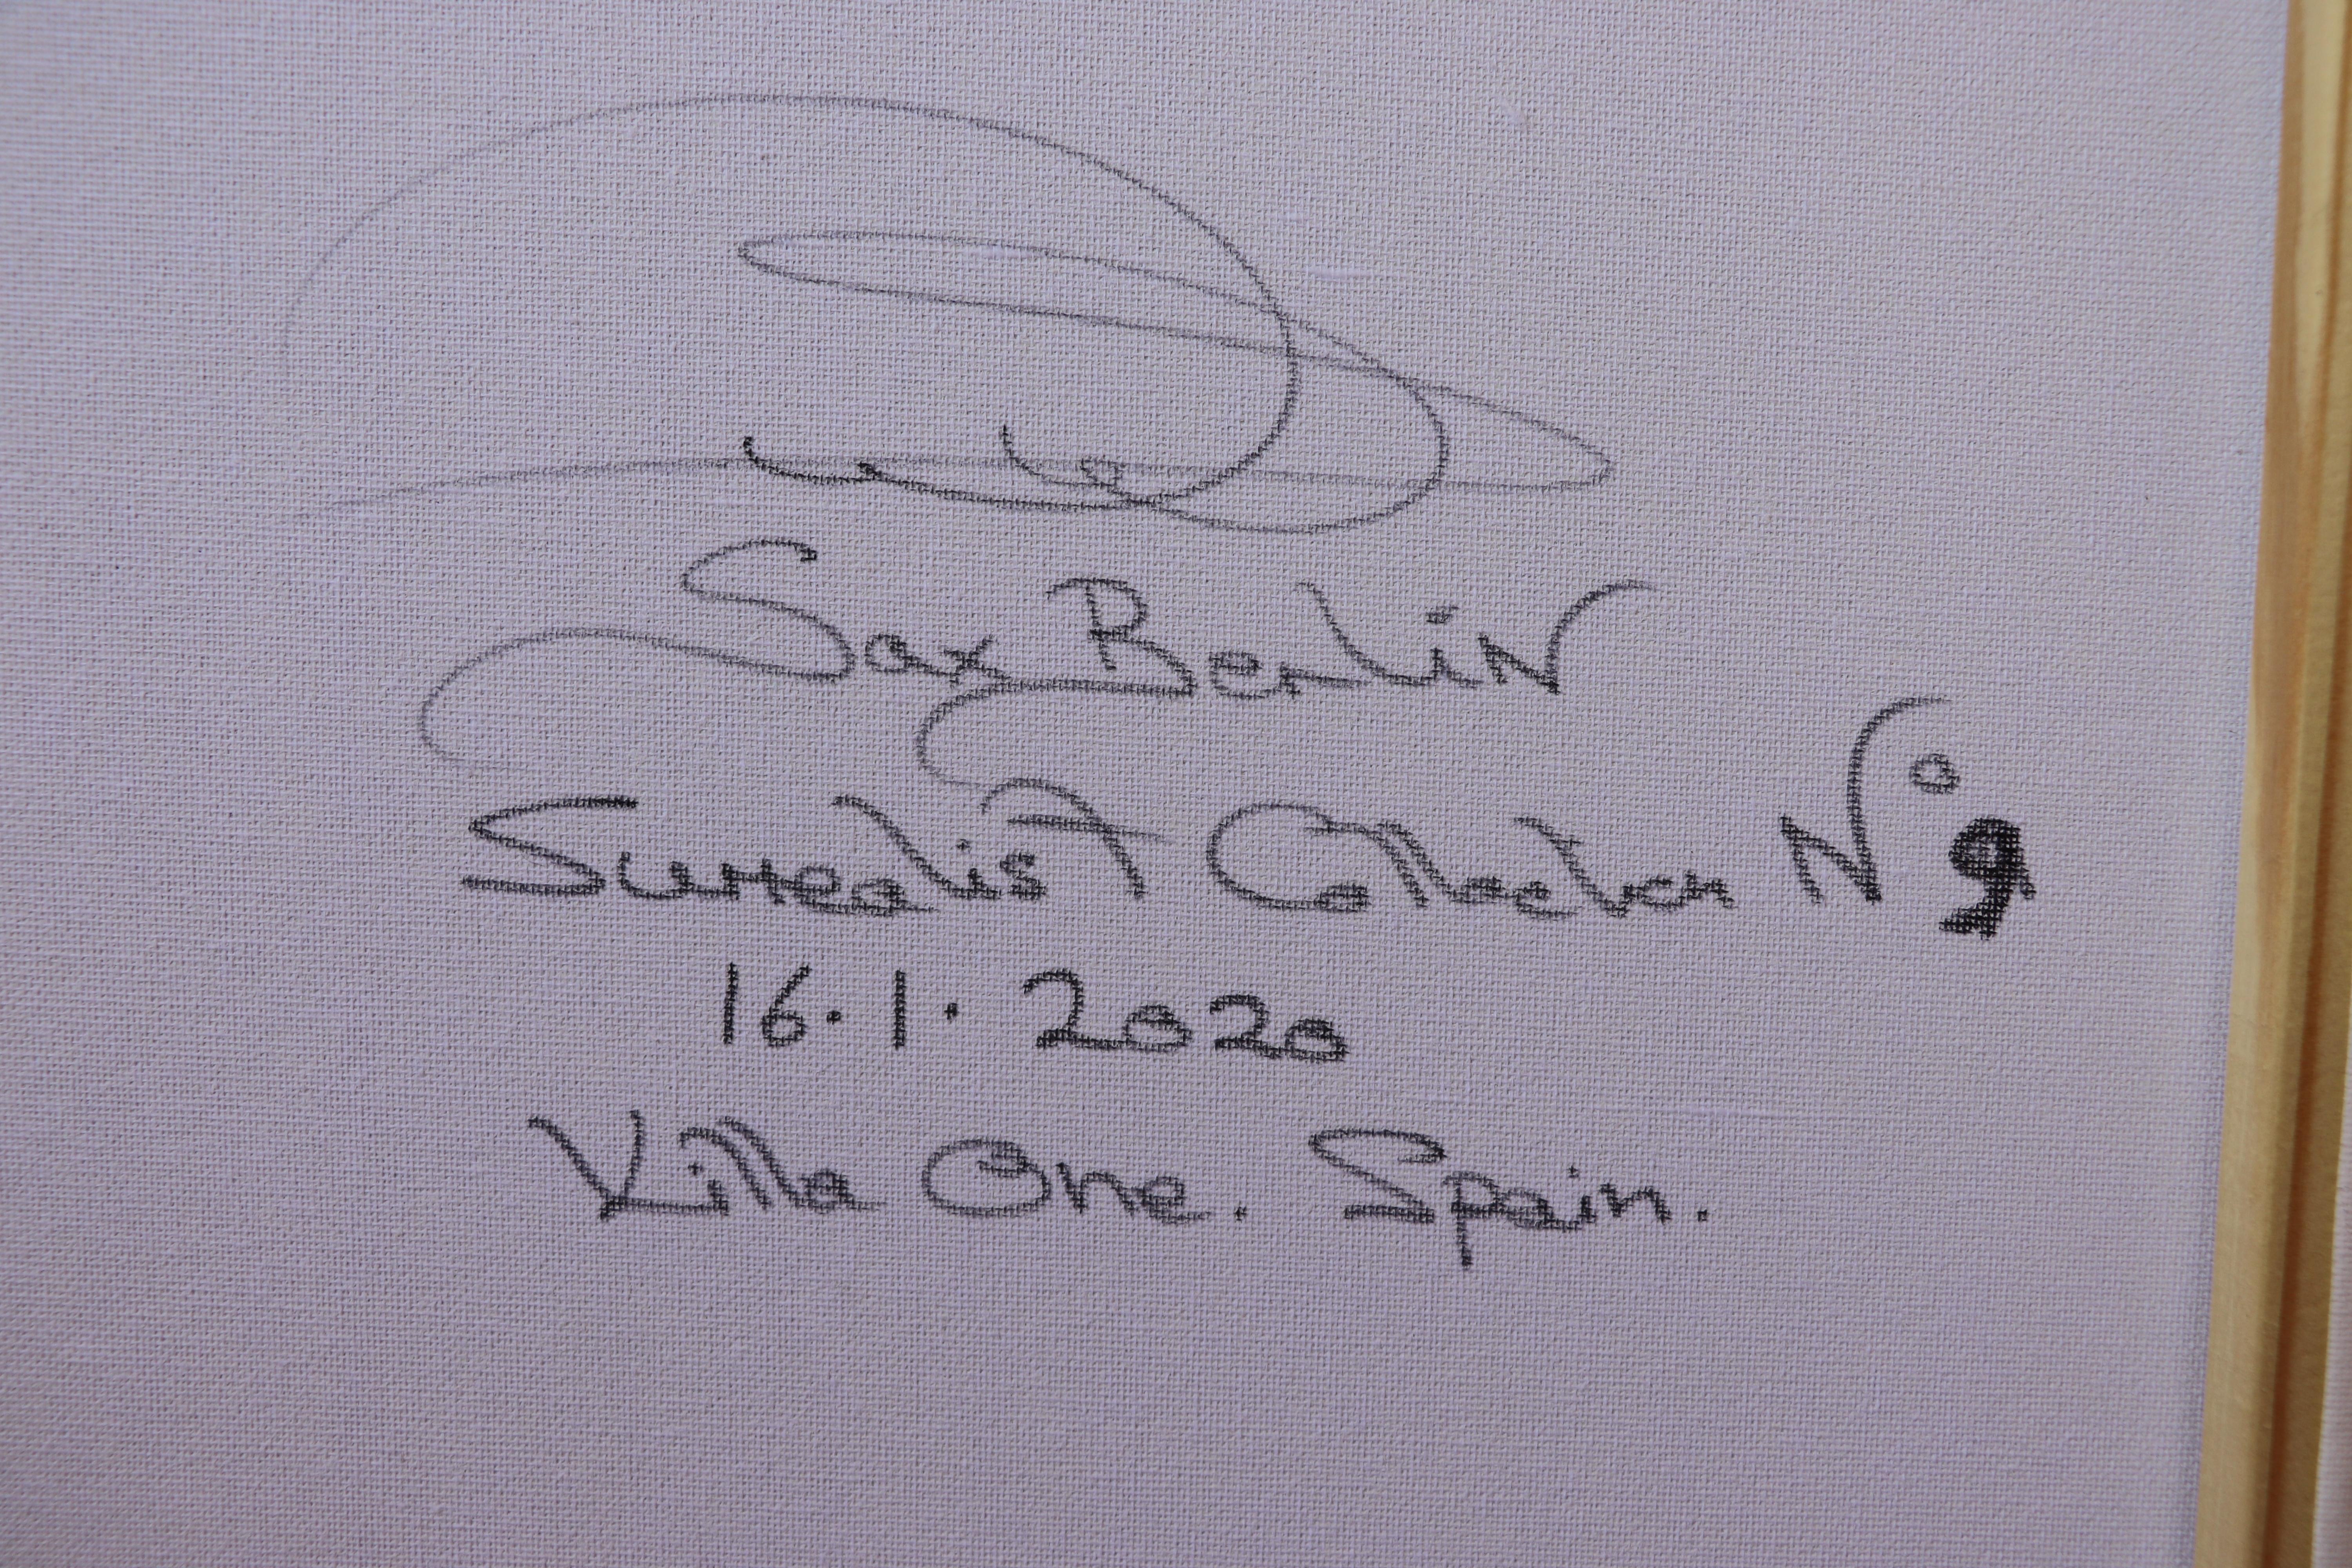 Sax Berlin
Surrealist Collection Nº 9
16.1.2020
Villa One. Spain.